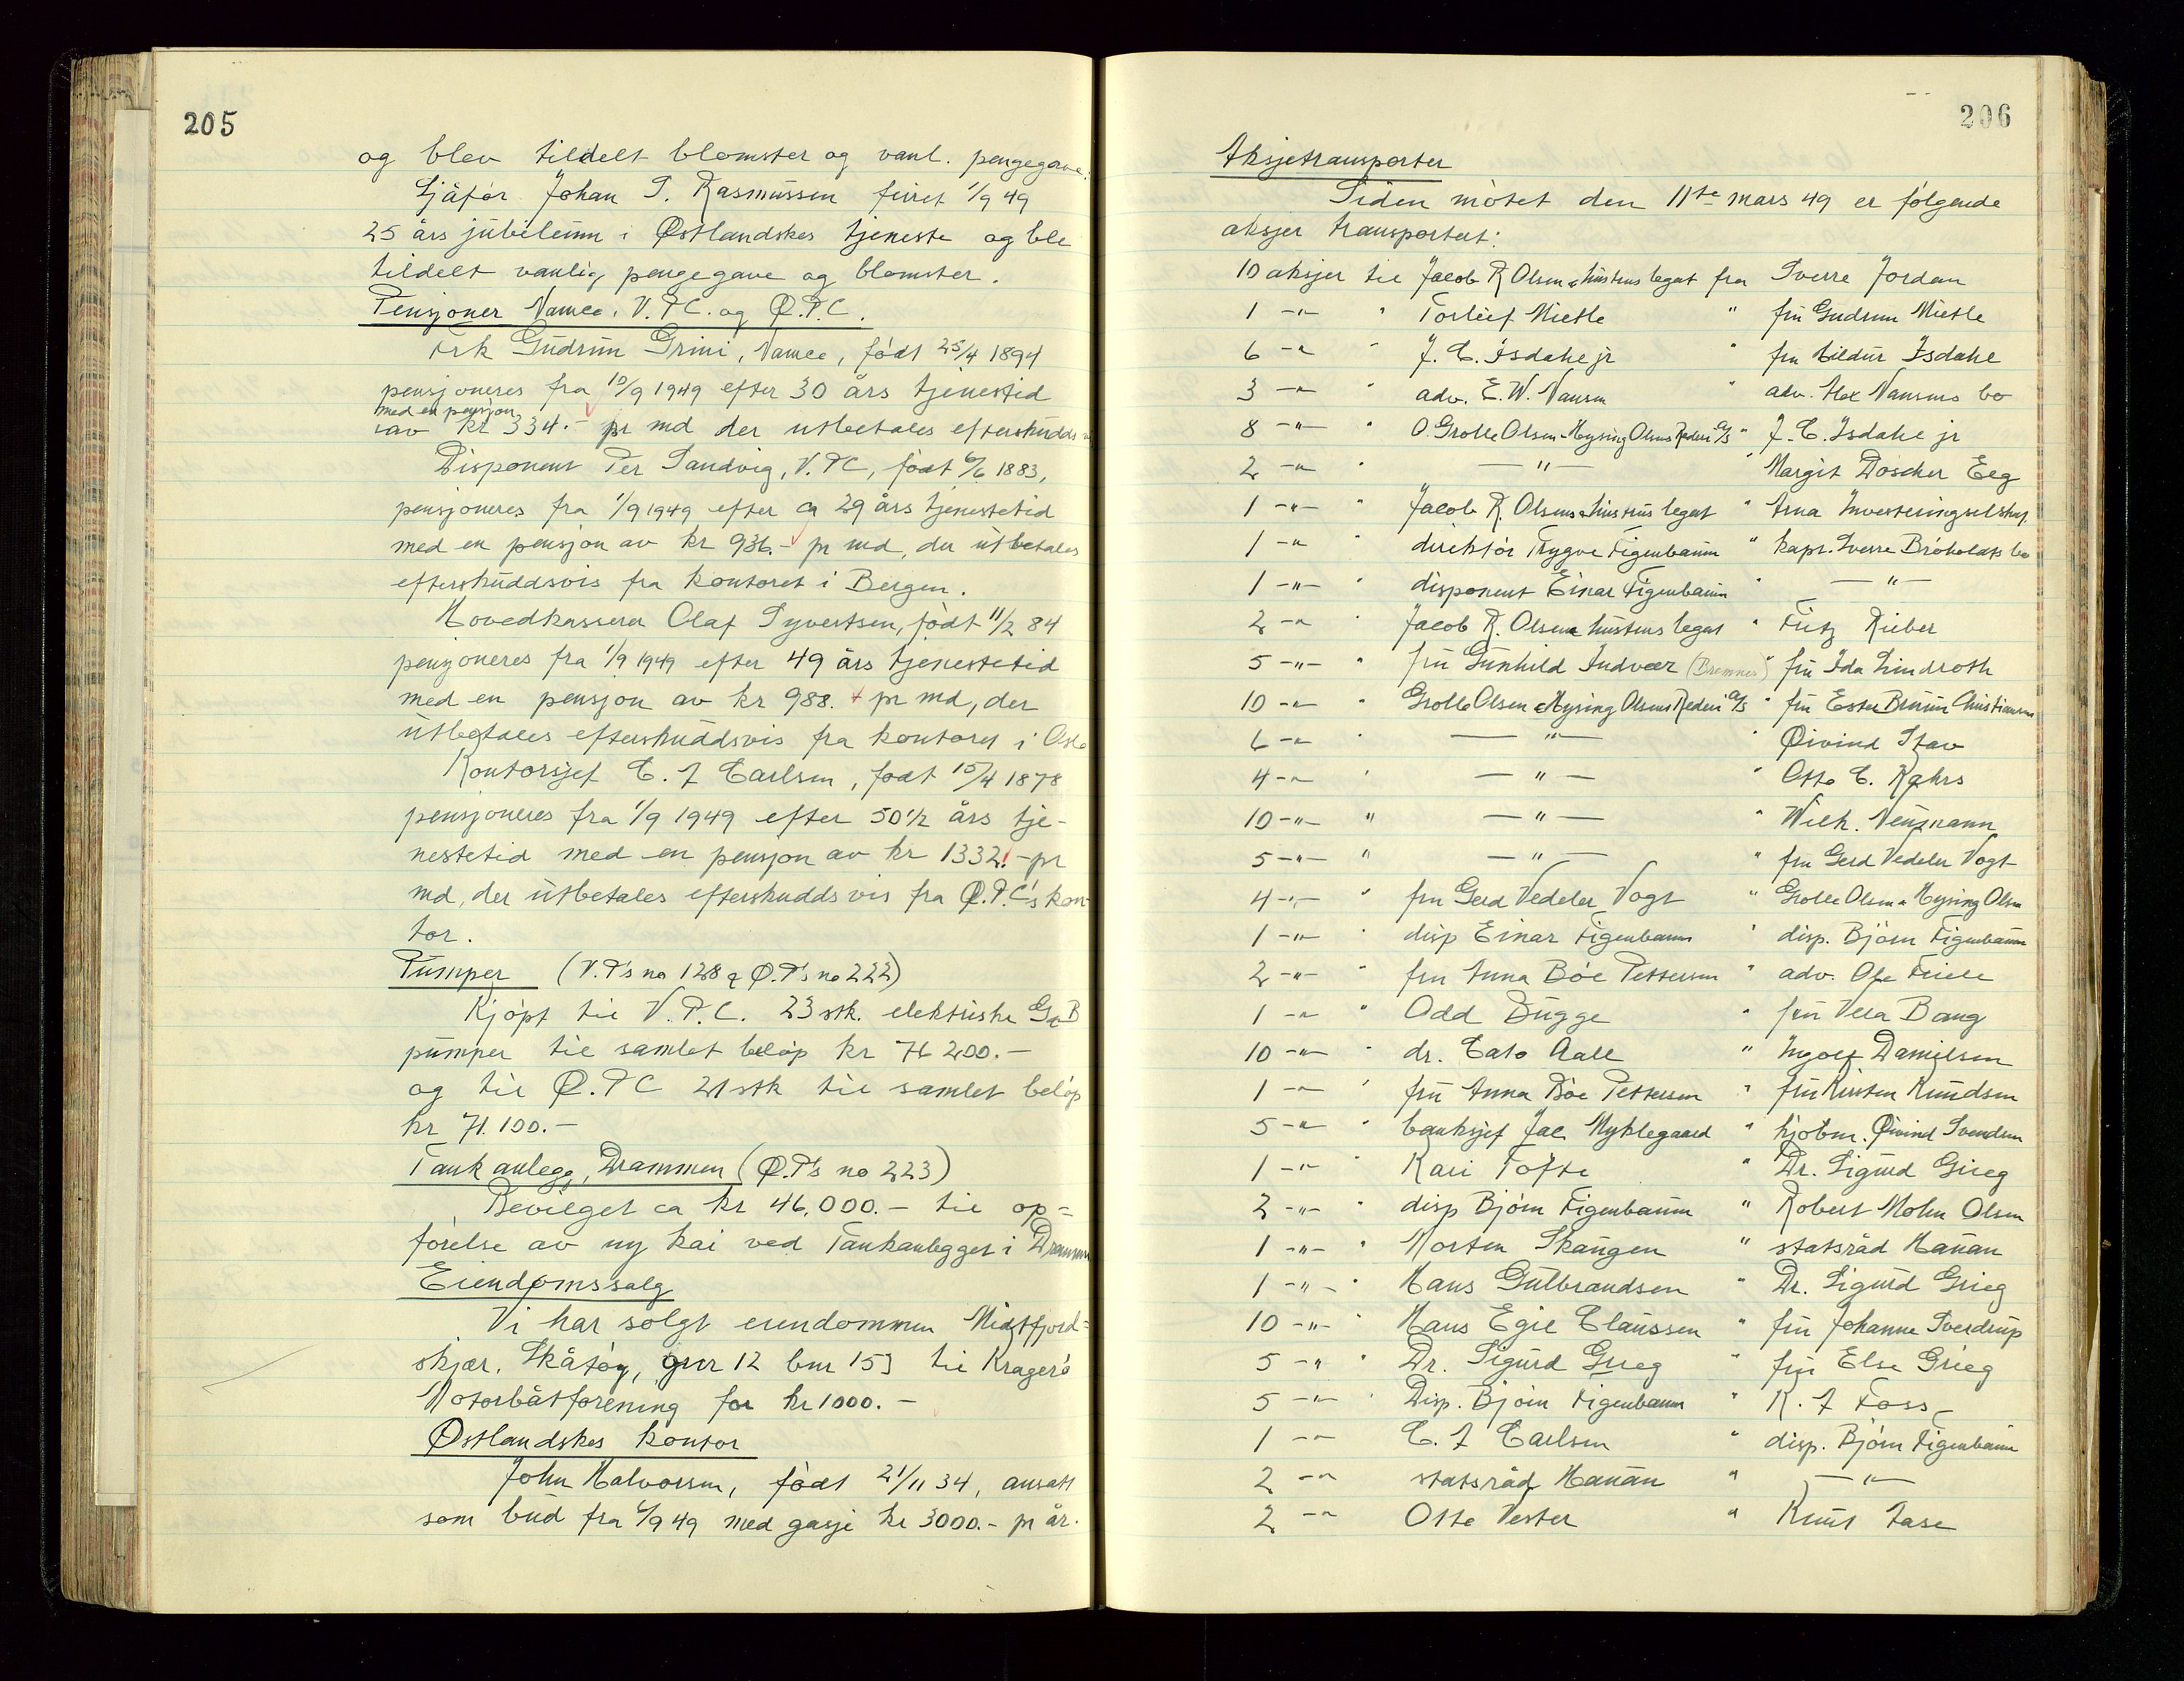 205
og blev tildelt blomster og vanl. pengegave.
Sjåfør Johan S. Rasmussen feiret 1/9 49
25 års jubileum i Østlandskes tjeneste og ble
tildelt vanlig pengegave og blomster.
Pensjoner Namco, V.P.C. og Ø.P.C.
Frk Gudrun Grini, Namco, født 25/4 1894
pensjoneres fra 10/9 1949 efter 30 års tjenestid
med en pensjon
av kr 334.- pr md der utbetales efterskudds
Disponent Per Sandvig, V.PC, født 6/6 1883,
pensjoneres fra 1/9 1949 efter ca 29 års tjenestetid
med en pensjon av kr 936.- pr md, der utbetales
efterskuddsvis fra kontoret i Bergen.
Hovedkasserer Olaf Syvertsen, født 11/2 84
pensjoneres fra 1/9 1949 efter 49 års tjenestetid
med en pensjon av kr 988.- pr md, der
utbetales efterskuddsvis fra kontoret i Oslo
Kontorsjef C. F Carlsen, født 15/4 1878
pensjoneres fra 1/9 1949 efter 50 1/2 års tje-
nestetid med en pensjon av kr 1332.- pr
md, der utbetales efterskuddsvis fra Ø.P.C's kon
tor.
Pumper (V.P's no 128 & Ø.P's no 222)
Kjøpt til V.P.C. 23 stk. elektriske G&B
pumper til samlet beløp kr 76 200.-
og til Ø.PC 21 stk til samlet beløp
kr 71.100.-
Tankanlegg, Drammen (Ø.P's no 223)
Bevilget ca kr 46.000.- til op=
førelse av ny kai ved Tankanlegget i Drammen
Eiendomssalg
Vi har solgt eiendommen Midtfjord=
skjær, Skåtøy, gnr 12 bnr 153 til Kragerø
Motorbåtforening for kr 1000.-
Østlandskes kontor
John Halvorsen, født 21/11 34, ansatt
som bud fra 6/9 49 med gasje kr 3000.- pr år.
206
Aksjetransporter
Siden møtet den 11te mars 49 er følgende
aksjer transportert:
10 aksjer til Jacob R Olsen & hustrus legat fra Sverre Jordan
1 -"- " Torleif Mietle " fru Gudrun Mietle
6 -"- " J. C. Isdahl jr " fru Hildur Isdahl
3 -"- " adv. E.W. Nansen " adv. Alex Nansens bo
8 -"- " O. Grolle Olsen & Hysing Olsens Rederi A/S " J. C. Isdahl jr
2 -"- " -"- " Margit Döscher Eeg
1 -"- " Jacob R. Olsens & hustrus legat " Arna Investeringselskap
1 -"- " direktør Trygve Figenbaum " kapt. Sverre Brøholdts bo
1 -"- " disponent Einar Figenbaum " -"-
2 -"- " Jacob R. Olsen & hustrus legat " Fritz Rieber
5 -"- " fru Gunhild Indvær (Bremnes) " fru Ida Lindroth
10 -"- " Grolle Olsen & Hysing Olsens Rederi A/S " fru Ester Bruun Christiansen
6 -"- " -"- " Øivind Stav
4 -"- " -"- " Otto C. Kahrs
10 -"- " -"- " Wilh. Neumann
5 -"- " -"- " fru Gerd Vedeler Vogt
4 -"- " fru Gerd Vedeler Vogt " Grolle Olsen & Hysing Olsen
1 -"- " disp Einar Figenbaum " disp. Bjørn Figenbaum
2 -"- " fru Anna Bøe Pettersen " adv. Ole Friele
1 -"- " Odd Bugge " fru Vera Bang
10 -"- " dr. Cato Aall " Ingolf Danielsen
1 -"- " fru Anna Bøe Pettersen " fru Kirsten Knudsen
5 -"- " banksjef Jac Myklegaard " kjøbm. Øivind Svendsen
1 -"- " Kari Tofte " Dr. Sigurd Grieg
2 -"- " disp Bjørn Figenbaum " Robert Mohn Olsen
1 -"- " Morten Skaugen " statsråd Hauan
1 -"- " Hans Gulbrandsen " Dr. Sigurd Grieg
10 -"- " Hans Egil Claussen " fru Johanne Sverdrup
5 -"- " Dr. Sigurd Grieg " fru Else Grieg
5 -"- " Disp. Bjørn Figenbaum " K. F Foss
1 -"- C. F Carlsen " disp. Bjørn Figenbaum
2 -"- statsråd Hauan " -"-
2 -"- Otto Vester " Knut Aase